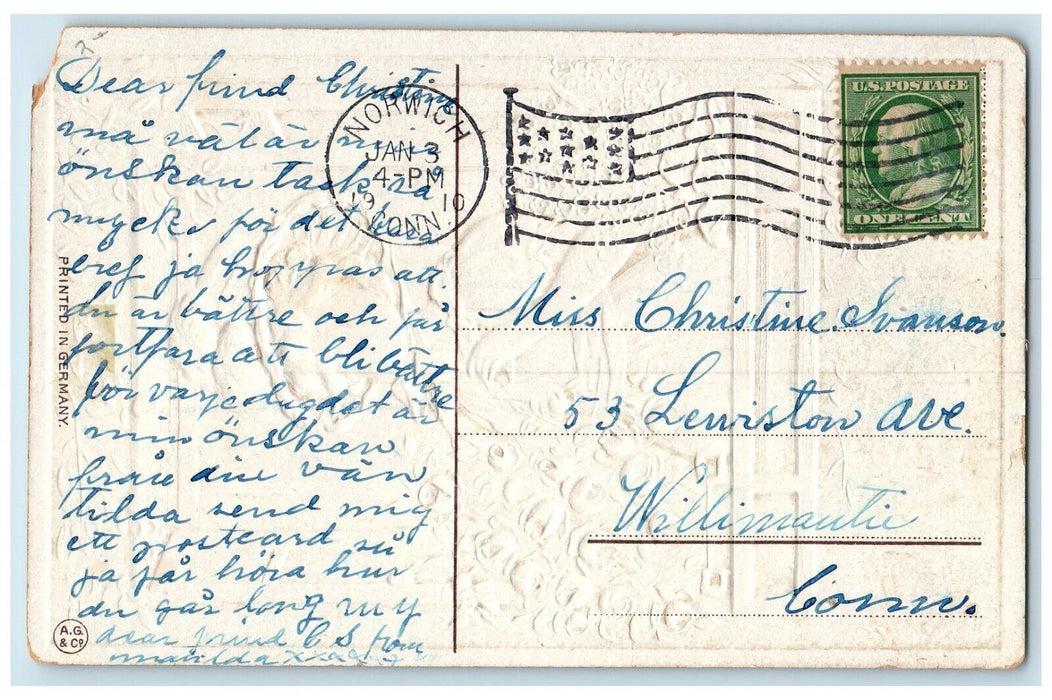 Dear frind Christine
må väl är min
önskan task så
mycke för det kära
bref ja hoppas att
du är bättre och får
fortfara att bli bättre
för varje dag det är
min önskan
från din vän
tilda send mig
ett postcard så
ja får höra hur
du går long my
dear frind C S from
matilda xxxxxx
PRINTED IN GERMANY.
A.G.
& Co
NORWICH
JAN 3
4-PM
19 10
CONN.
U.S. POSTAGE
ONE CENT
Miss Christine Swanson.
53 Lewiston Ave.
Willimantic
Conn.